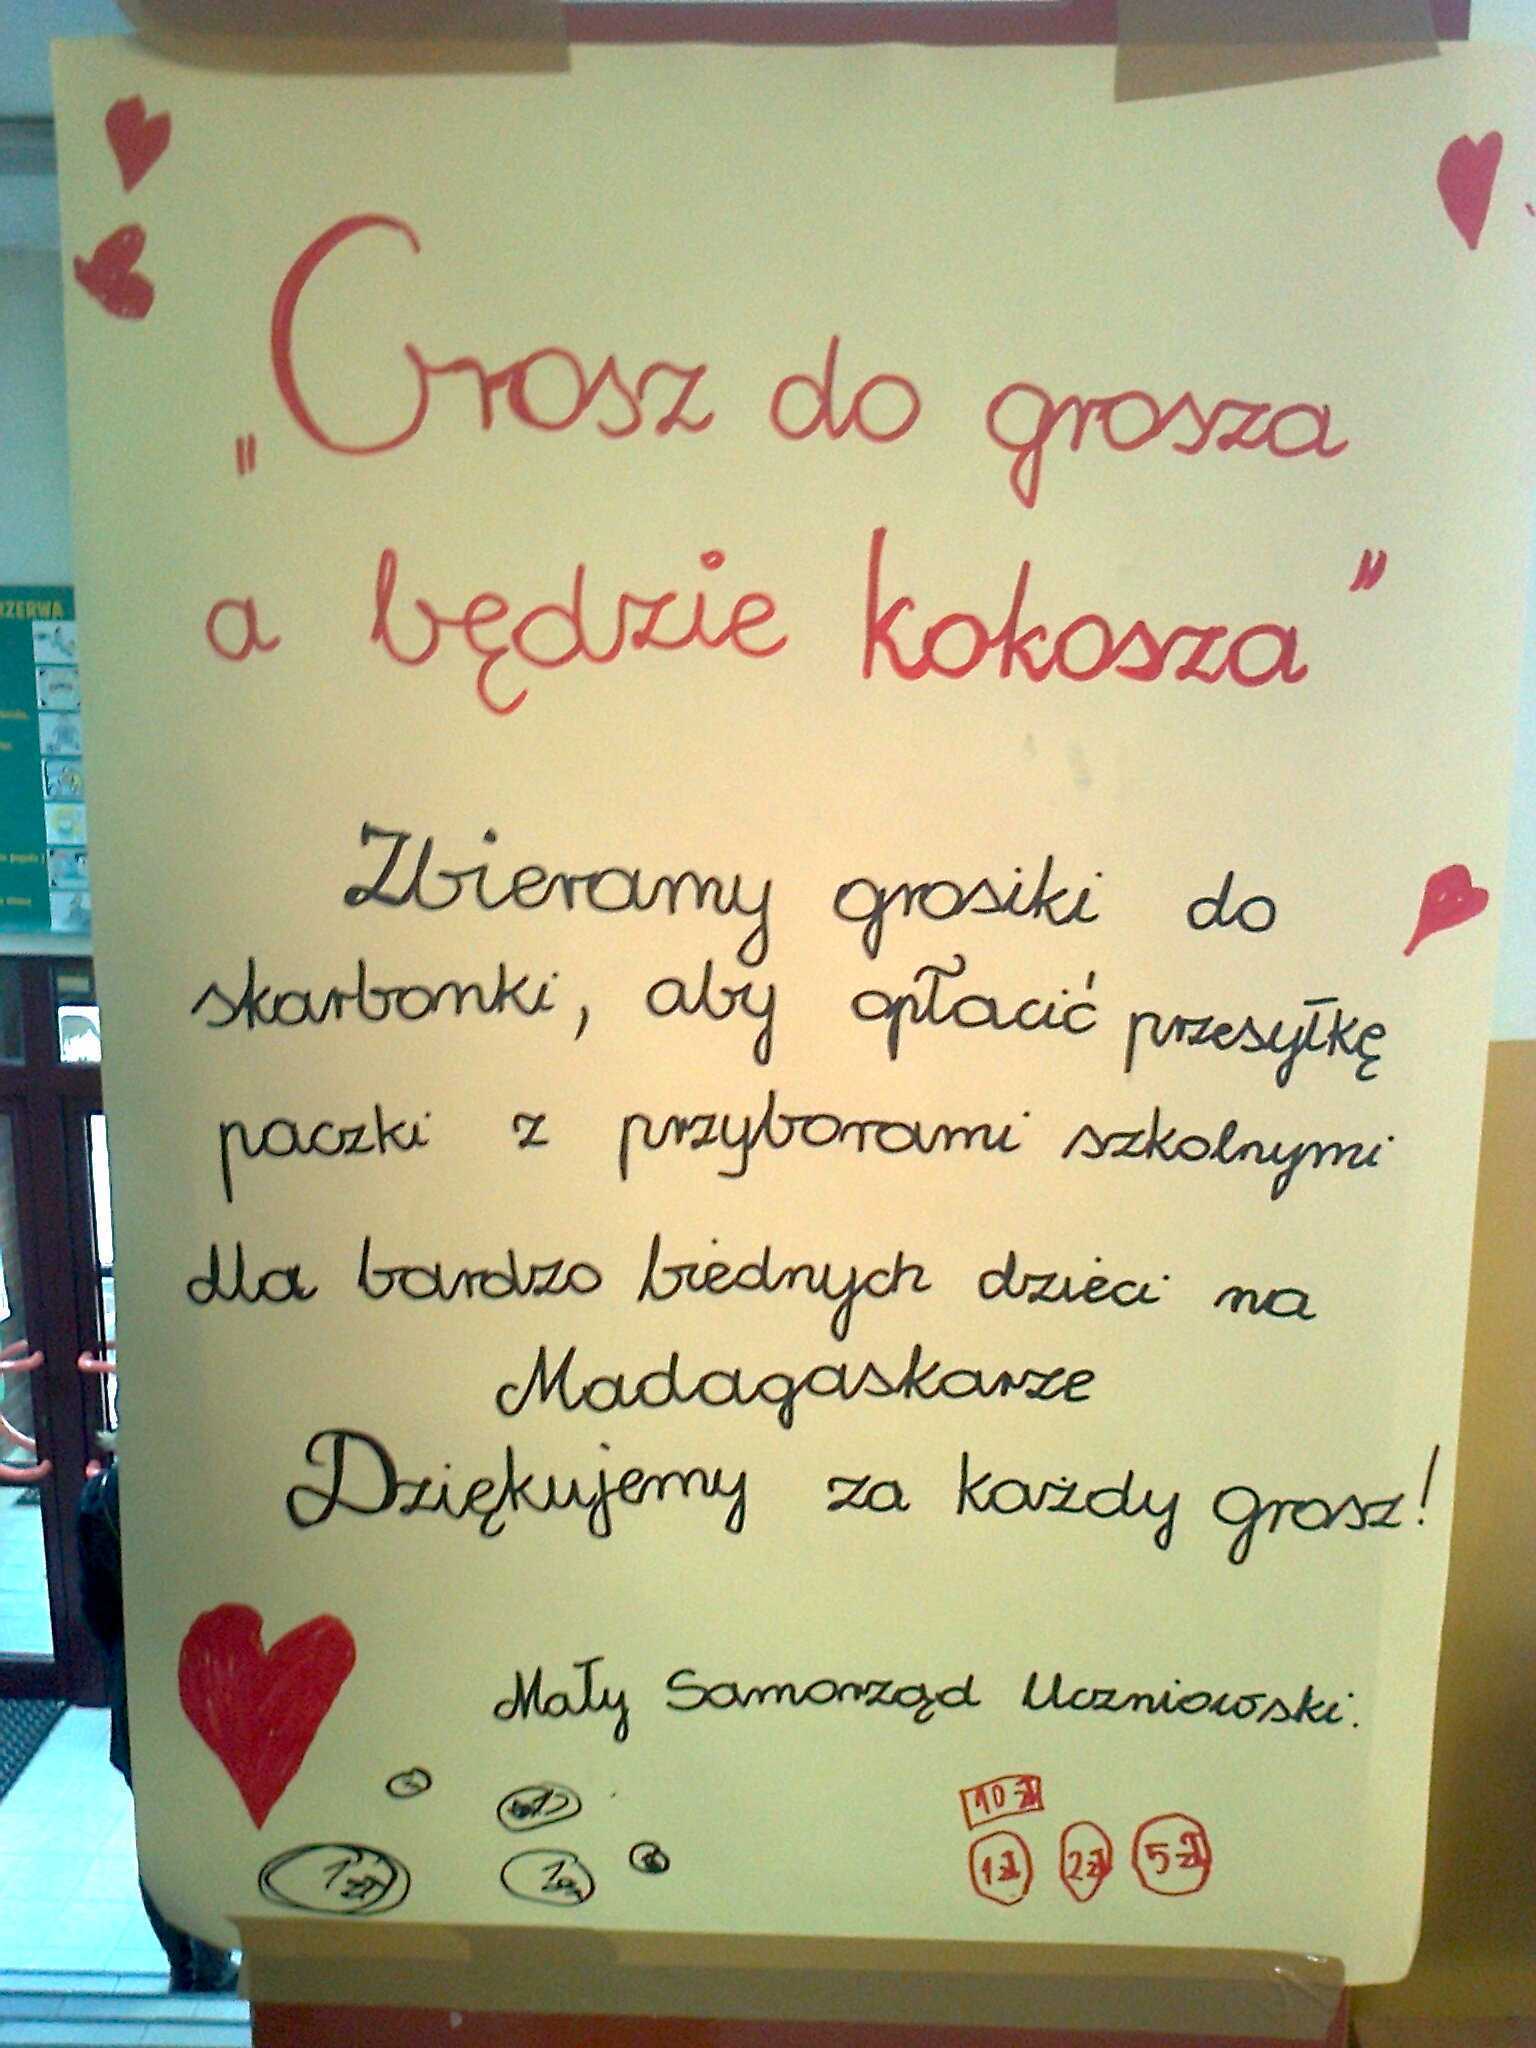 „Grosz do grosza
a będzie kokosza”
Zbieramy grosiki do
skarbonki, aby opłacić przesyłkę
paczki z przyborami szkolnymi
dla bardzo biednych dzieci na
Madagaskarze
Dziękujemy za każdy grosz!
Mały Samorząd Uczniowski.
10 zł
1 zł
1zł 2zł 5zł
RZERWA